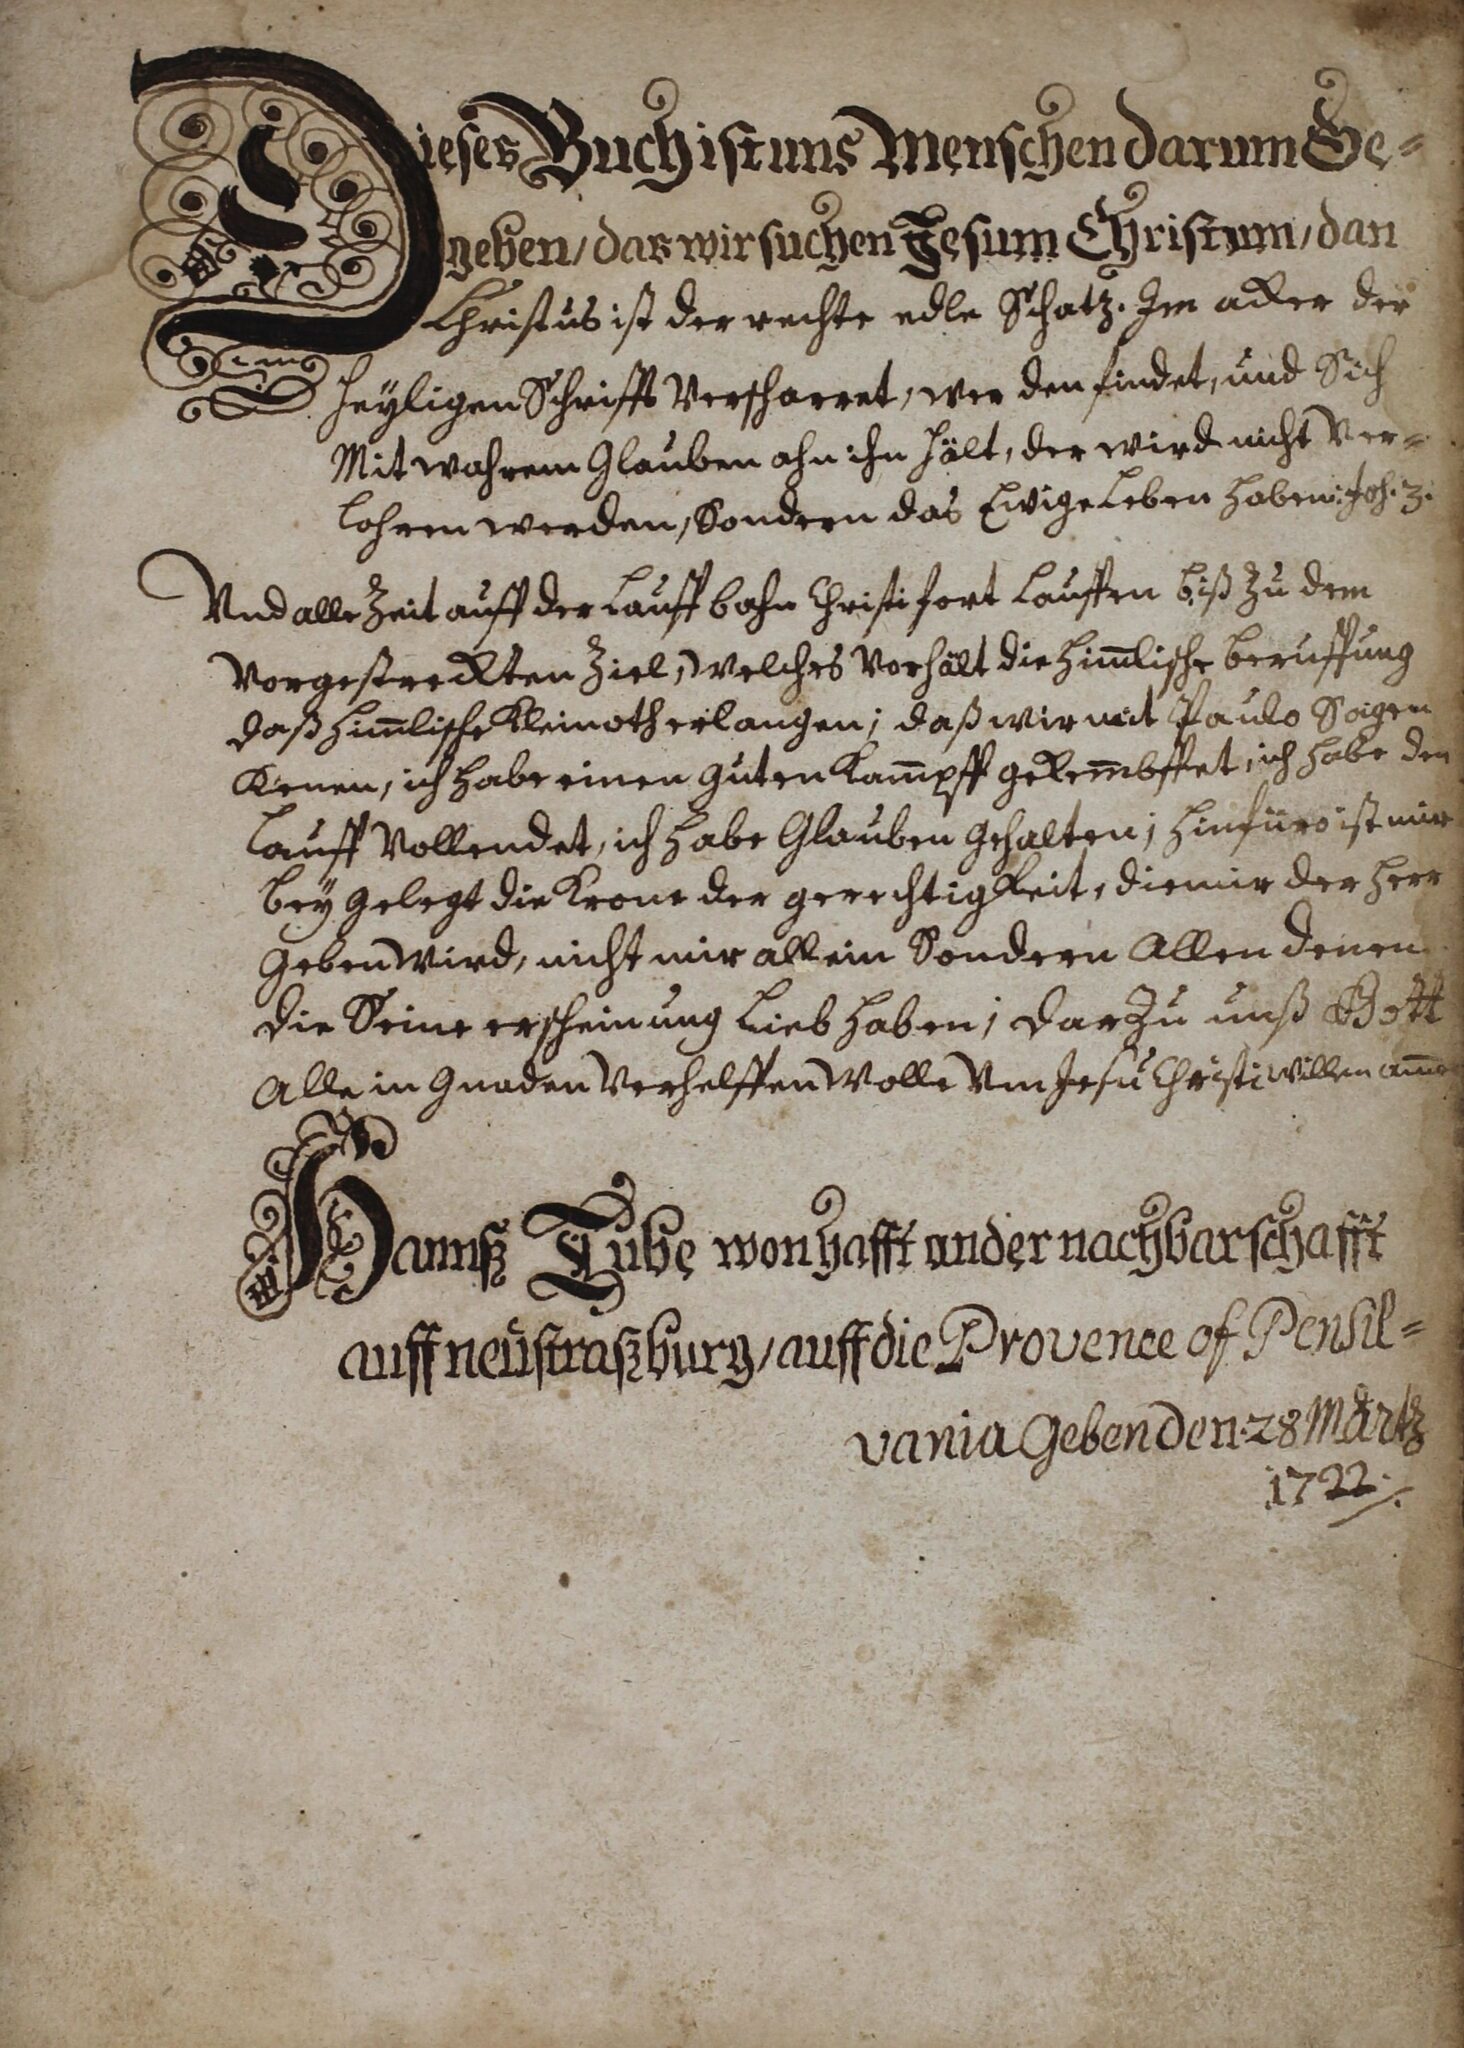 Dieses Buch ist uns Menschen darum Ge-
geben, das wir suchen Jesum Christum, dan
Christus ist der rechte edle Schatz. Im acker der
heyligen Schrifft Verscharret, wer den findet, und Sich
Mit wahrem Glauben ahn ihn hält, der wird nicht Ver-
lohren werden, Sondern das Ewige Leben haben: Joh. 3.
Und alle Zeit auff der Lauffbahn Christi fort Lauffen biß Zu dem
Vorgestreckten Ziel, Welches Vorhält die him̅lische beruffung
daß him̅lische Kleinoth erlangen; daß wir mit Paulo Sagen
Kenen, ich habe einen guten Kam̅pff gekem̅bffet, ich habe den
lauff Vollendet, ich habe Glauben gehalten; hinfüro ist mir
bey gelegt die Krone der gerechtigkeit, die mir der herr
geben Wird, nicht mir allein Sondern Allen denen
die Seine erscheinung Lieb haben; dar Zu unß Gott
Alle in Gnaden Verhelffen Wolle Vm Jesu Christi Willen am̅e
Hannß Tube wonhafft an der nachbarschafft
auff neüstraßburg, auff die Provence of Pensil-
vania Geben den. 28 Märtz
1722.